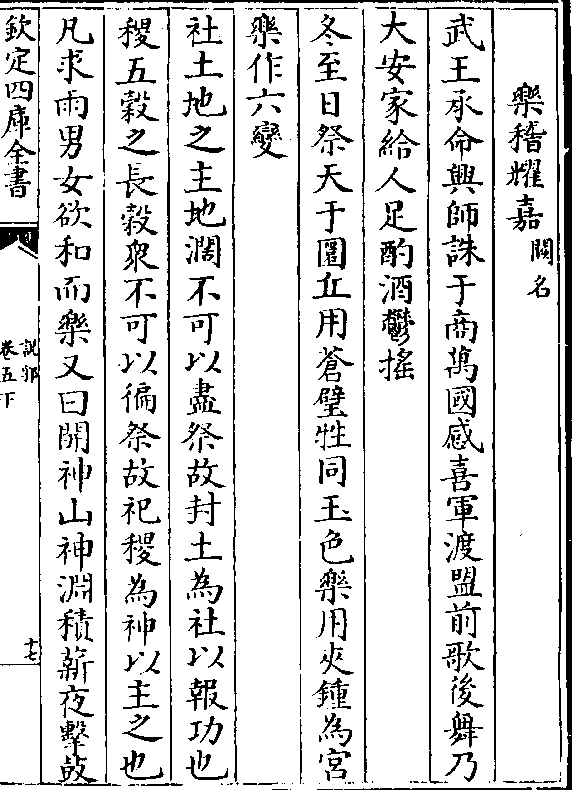 樂稽耀嘉 闕名
武王承命興師誅于商萬國感喜軍渡盟前歌後舞乃
大安家給人足酌酒鬱搖
冬至日祭天于圜丘用蒼璧牲同玉色樂用夾鍾為宮
樂作六變
社土地之主地濶不可以盡祭故封土為社以報功也
稷五穀之長穀衆不可以徧祭故祀稷為神以主之也
凡求雨男女欲和而樂又曰開神山神淵積薪夜擊鼓
欽定四庫全書
說郛
卷五下
十七